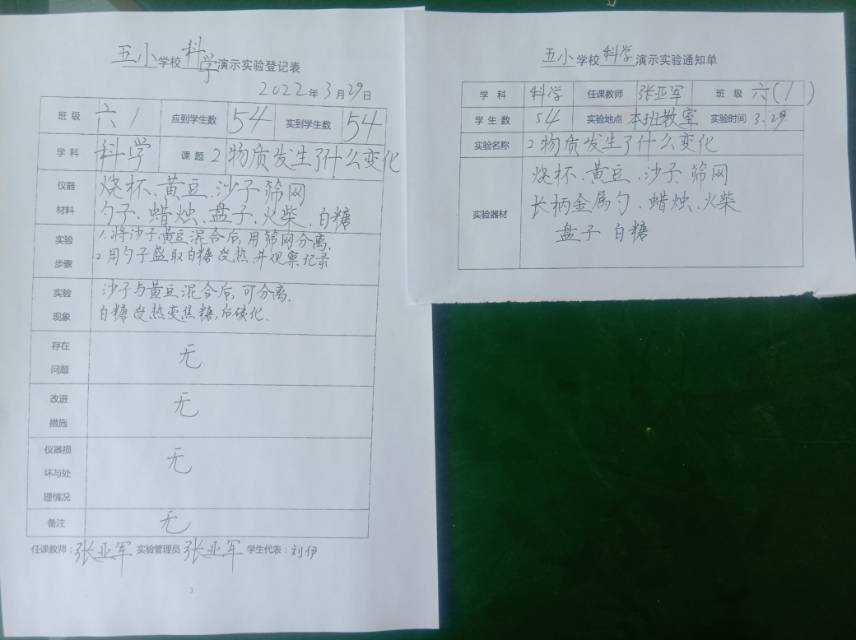 五小学校科学演示实验登记表
2022年3月29日
班级 六1 应到学生数 54 实到学生数 54
学科 科学 课题 2物质发生了什么变化
仪器材料 烧杯、黄豆、沙子筛网
勺子、蜡烛、盘子、火柴、白糖
实验步骤 1.将沙子黄豆混合后,用筛网分离,
2.用勺子盛取白糖加热并观察记录
实验现象 沙子与黄豆混合后,可分离.
白糖加热变焦糖,后碳化.
存在问题 无
改进措施 无
仪器损坏与处理情况 无
备注 无
任课教师:张亚军 实验管理员 张亚军 学生代表:刘伊
3
五小学校科学演示实验通知单
学科 科学 任课教师 张亚军 班级 六(1)
学生数 54 实验地点 本班教室 实验时间 3.29
实验名称 2物质发生了什么变化
实验器材 烧杯、黄豆、沙子筛网
长柄金属勺、蜡烛、火柴
盘子 白糖